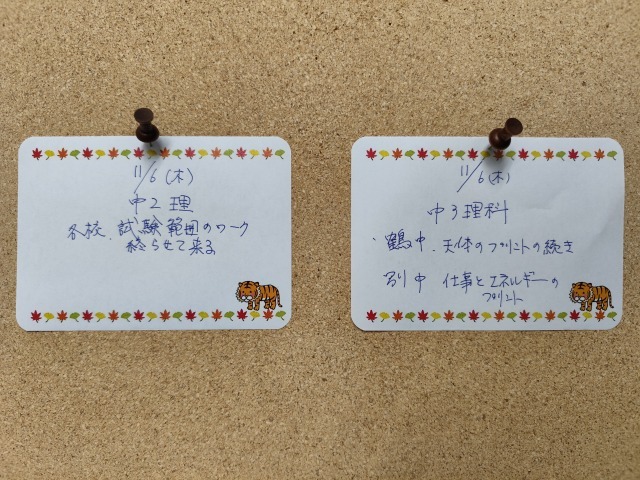 11/6(木)
中2理
各校、試験範囲のワーク
終らせて来る
11/6(木)
中3理科
・鶴中、天体のプリントの続き
別中 仕事とエネルギーの
プリント